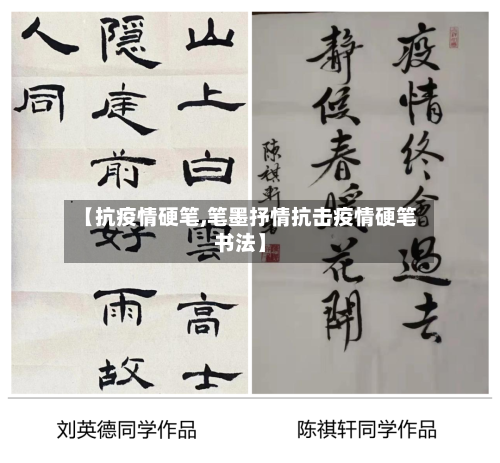 山上白雲高士
隐庭前好雨故
人同
疫情終會過去
靜候春暖花開
陳祺軒
【抗疫情硬笔,笔墨抒情抗击疫情硬笔
书法】
刘英德同学作品
陈祺轩同学作品